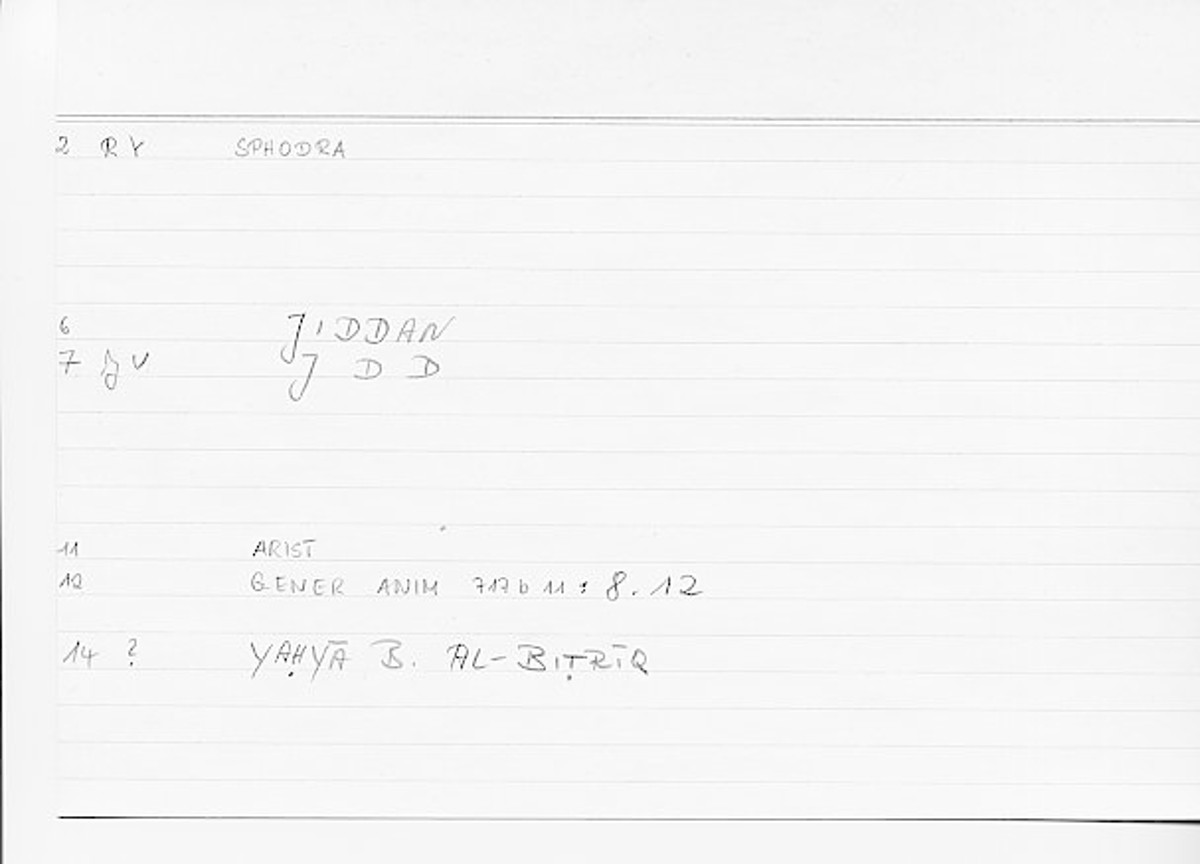 2 R V SPHODRA
6 JIDDAN
7 J V J D D
11 ARIST
12 GENER ANIM 717 b 11 : 8. 12
14 ? YAḤYĀ B. AL-BIṬRĪQ